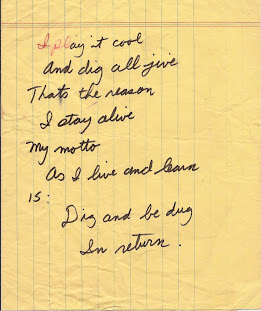 I play it cool
And dig all jive
Thats the reason
I stay alive
My motto
As I live and learn
is:
Dig and be dug
In return.